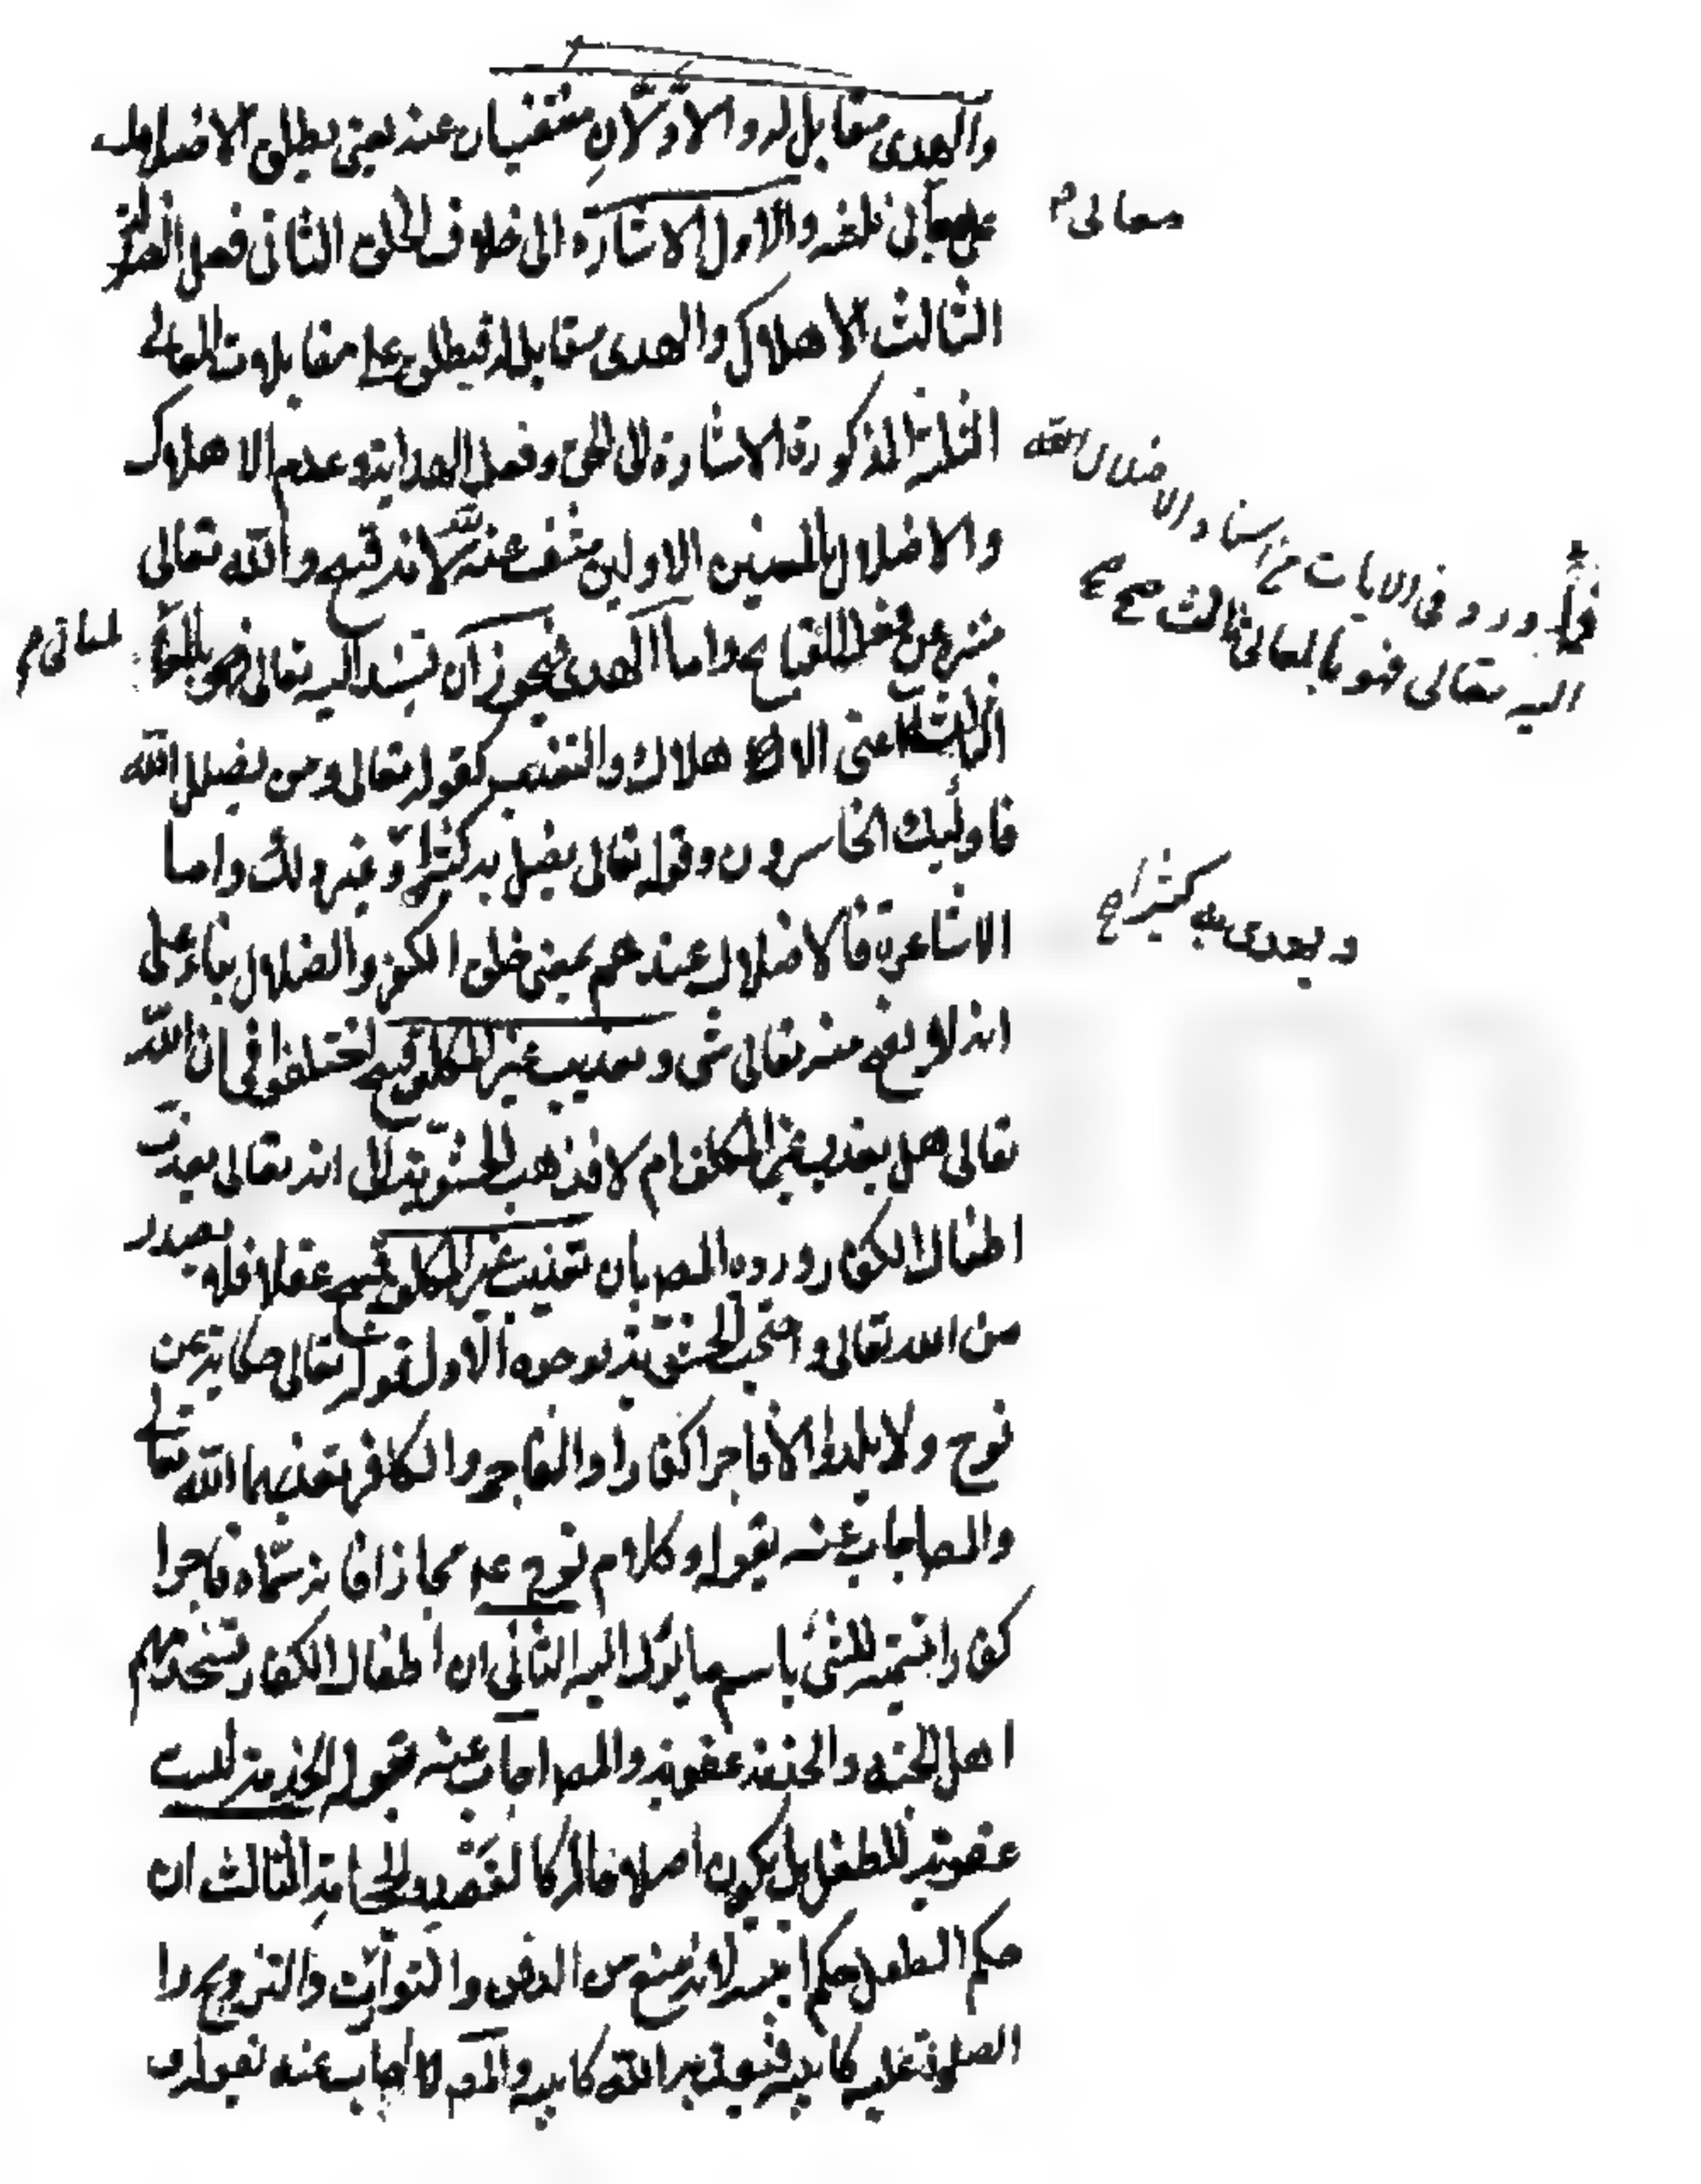 والهدى مقابل له والاوّلان منتفيان عنه يعني يطلق الاضلال
على معانى ثلثة والاول الاشارة الى خلاف الحق الثانى فعل الضلالة
الثالث الاهلاك والهدى مقابل له فيطلق على مقابلات المعانى
الثلاثة المذكورة الاشارة الى الحق وفعل الهداية وعدم الاهلاك
والاضلال بالمعنيين الاولين منتف عنه لانه قبيح والله تعالى
منزه عن فعل القبايح واما الهدى فيجوز ان تسند اليه تعالى
الثالث اعنى الاهلاك والتعذيب كقوله تعالى ومن يضلل الله
فاولئك الخاسرون وقوله تعالى يضل به كثيرا وغير ذلك واما
الاشاعرة فالاضلال عندهم بمعنى خلق الكفر والضلال بناء على
انه لا يقبح منه تعالى شى وتعذيب غير المكلف قبيح اختلفوا فى ان الله
تعالى هل يعذب غير المكلف ام لا فذهب الحشوية الى انه تعالى يعذب
اطفال الكفار ورده المصه بان تعذيب غير المكلف قبيح عقلا فلا يصدر
من الله تعالى واحتجت الحشوية بوجوه الاول قوله تعالى حكاية عن
نوح ولا يلدوا الا فاجرا كفارا والفاجر والكافر يعذبهما الله تعالى
والمصه اجاب عنه بقوله وكلام نوح عم مجاز اى انه سمّاه فاجرا
كفارا تسمية للشئ باسم ما يؤل اليه الثانى ان اطفال الكفار تستخدمهم
اهل الجنة والخدمة عقوبة والمصه اجاب عنه بقوله الخدمة ليست
عقوبة للطفل بل يكون اصلاحا له كالفصد والحجامة الثالث ان
حكم الطفل حكم ابيه لانه يمنع من الدفن والتوارث والتزويج وا
الصلوة عليه كابيه فيعذبه الله كابيه والمصه اجاب عنه بقوله
معانى م
فما ورد فى الايات من اسناد الاضلال الى الله
اليه تعالى فهو بالمعانى الثالث صح صح
المعانى م
ويهدى به كثيرا صح